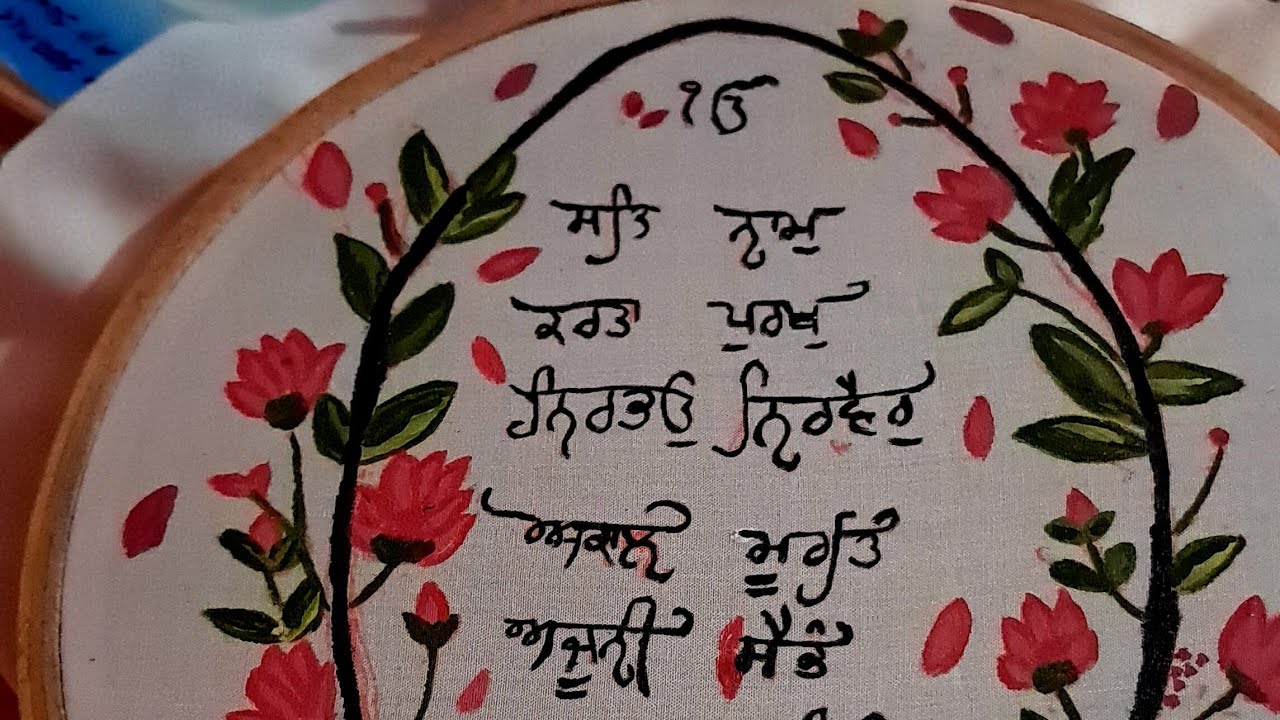 ੴ
ਸਤਿ ਨਾਮੁ
ਕਰਤਾ ਪੁਰਖੁ
ਨਿਰਭਉ ਨਿਰਵੈਰੁ
ਅਕਾਲ ਮੂਰਤਿ
ਅਜੂਨੀ ਸੈਭੰ